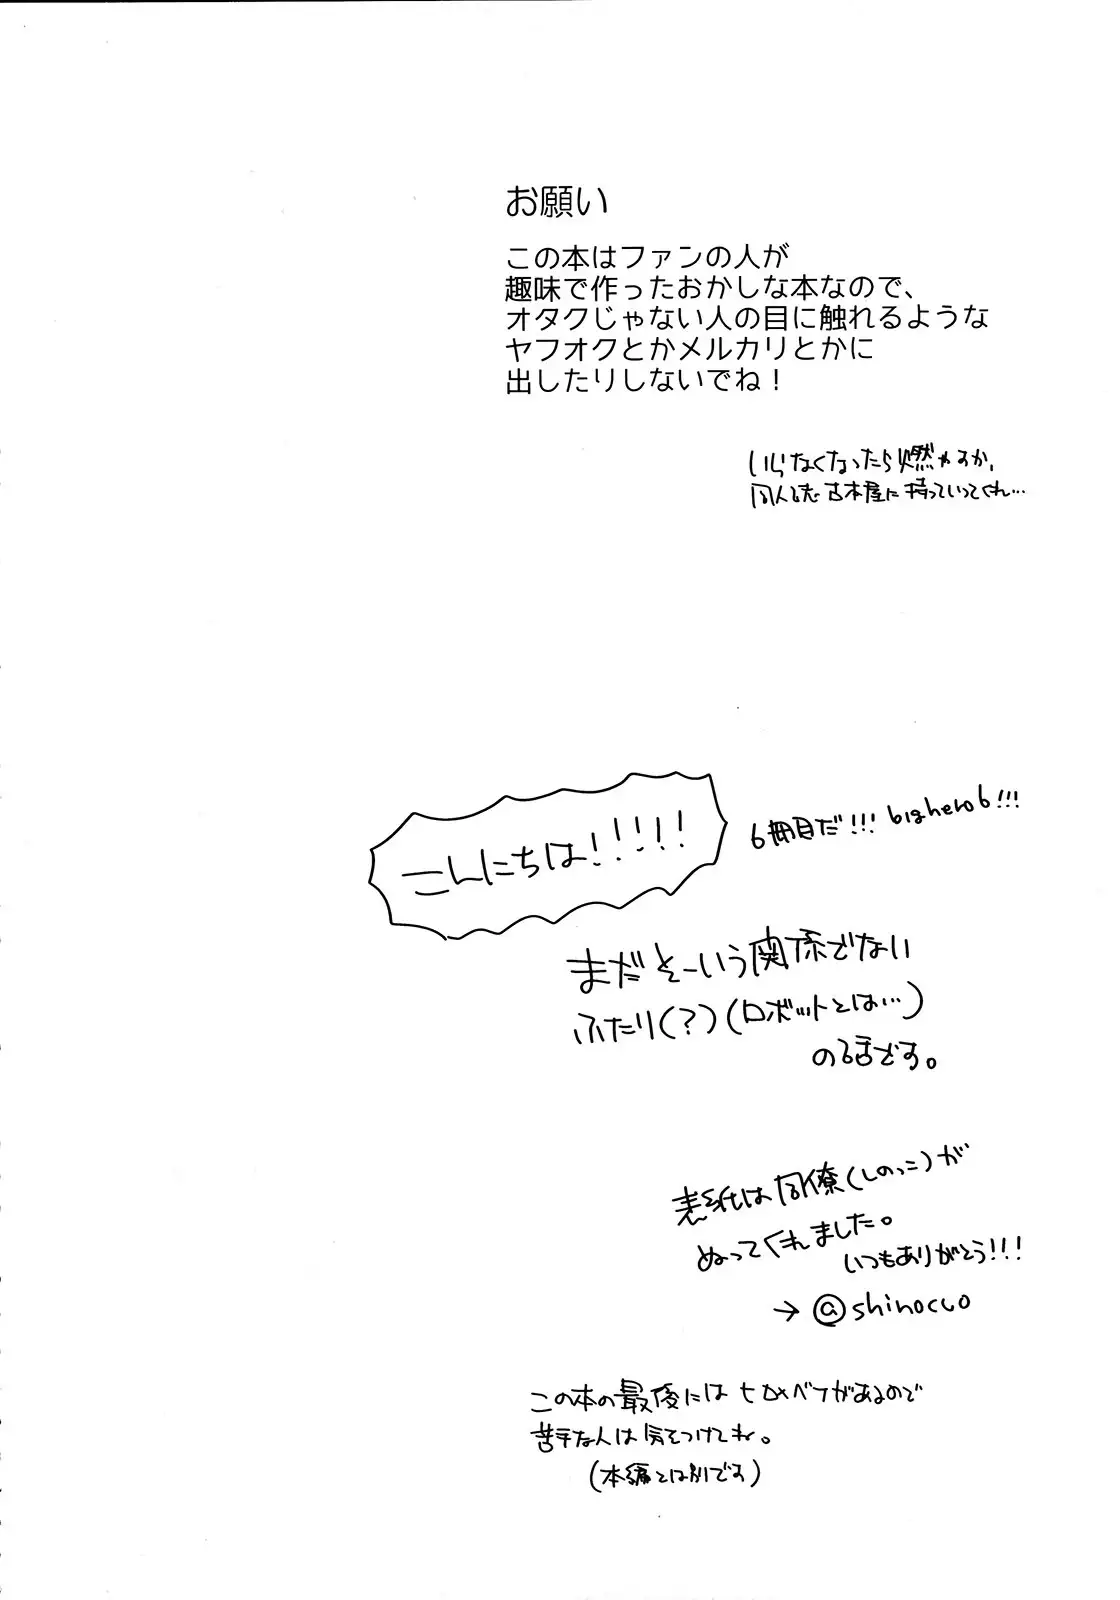 お願い
この本はファンの人が
趣味で作ったおかしな本なので、
オタクじゃない人の目に触れるような
ヤフオクとかメルカリとかに
出したりしないでね！
いらなくなったら燃やすか、
同人誌古本屋に持っていってくれ…
こんにちは!!!!!
6冊目だ!!! bighero6!!!
まだそーいう関係でない
ふたり(?)(ロボットとは…)
の話です。
表紙は同僚(しのっこ)が
ぬってくれました。
いつもありがとう!!!
→@shinocco
この本の最後にはヒロ×ベイがあるので
苦手な人は気をつけてね。
(本編とは別です)